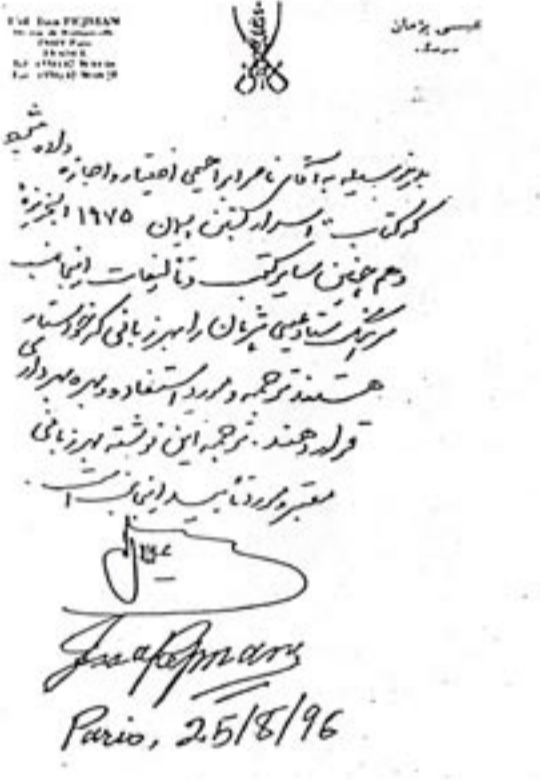 Col Issa PEJMAN
75007 Paris
FRANCE
عیسی پژمان
سرهنگ
بدینوسیله به آقای ناصر ابراهیمی اختیار و اجازه داده میشود
که کتاب « اسرار بستن پیمان ۱۹۷۵ الجزیره
و هم چنین سایر کتب و تألیفات اینجانب
سرهنگ ستاد عیسی پژمان را بهر زبانی که خواستار
هستند ترجمه و مورد استفاده و بهره برداری
قرار دهند . ترجمه این نوشته بهر زبانی
معتبر و مورد تأیید اینجانب است .
Issa Pejman
Paris, 25/8/96